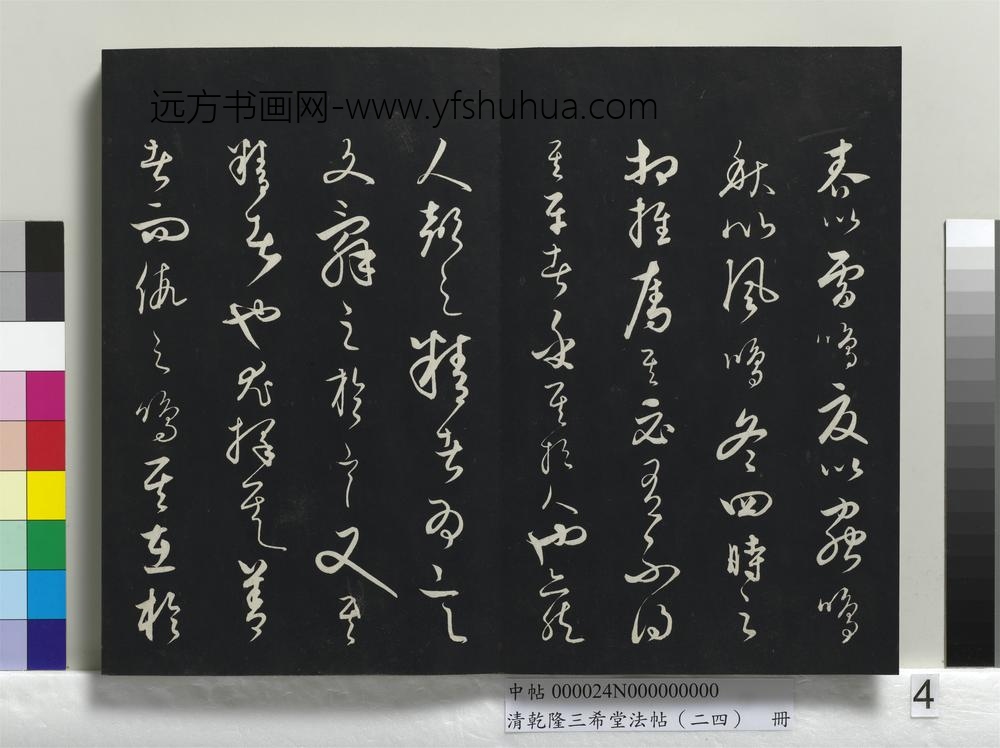 春以雷鳴夏以蟲鳴
秋以風鳴冬四時之
相推奪其必有不得
其平者乎其於人也亦然
人聲之精者為言
文辭之於言又其
精者也尤擇其善
者而假之鳴其在於
远方书画网-www.yfshuhua.com
中帖 000024N000000000
清乾隆三希堂法帖（二四） 冊
4